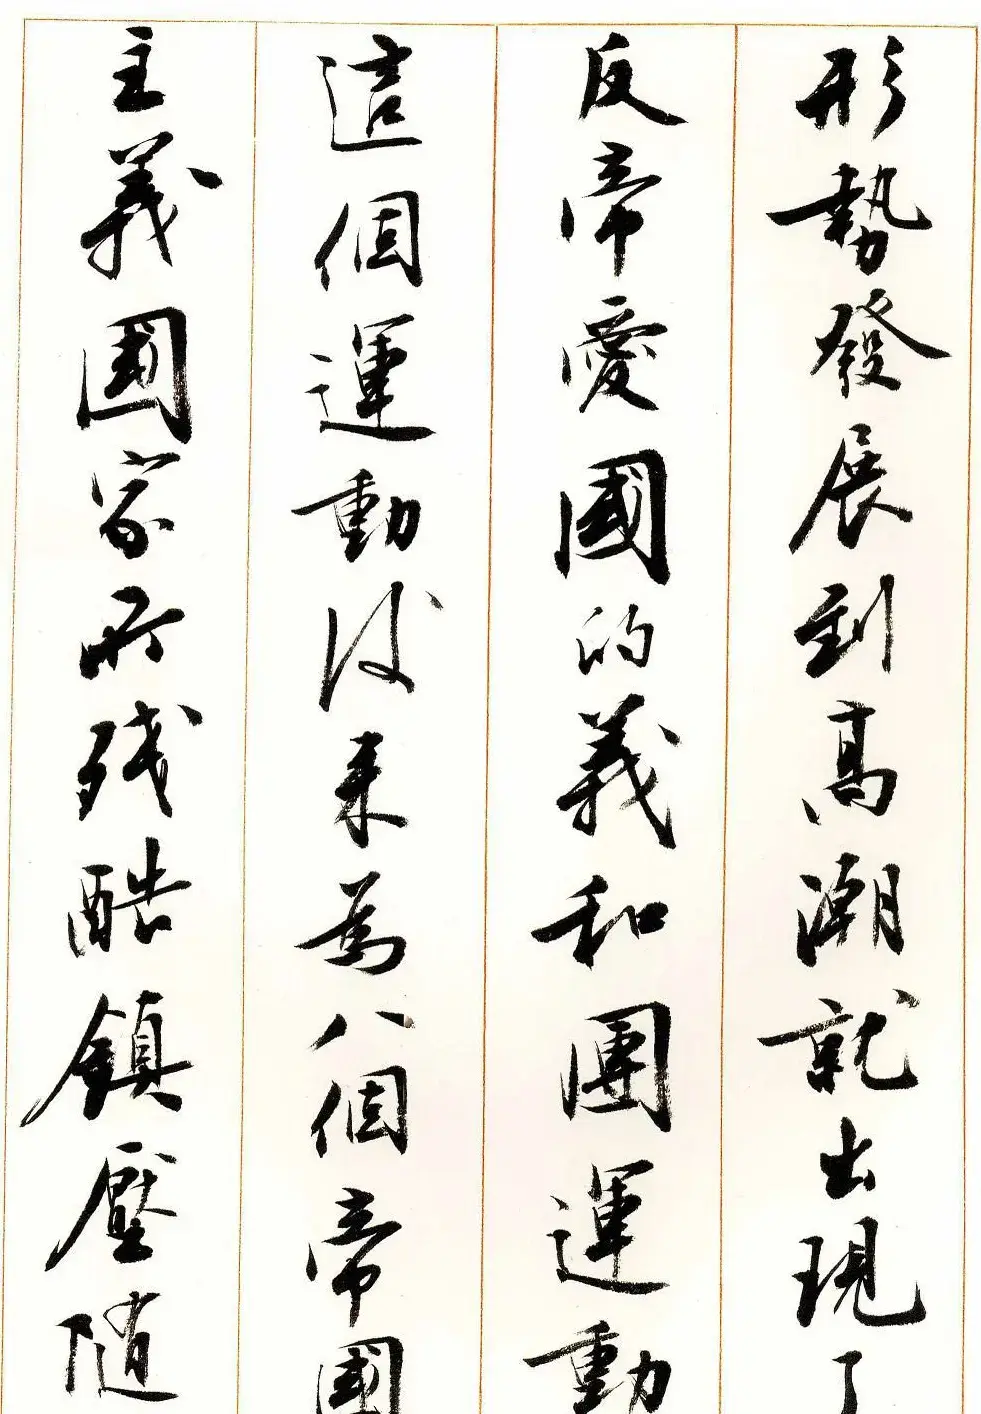 形勢發展到高潮就出現了
反帝愛國的義和團運動
這個運動後来為八個帝國
主義國家所残酷鎮壓随